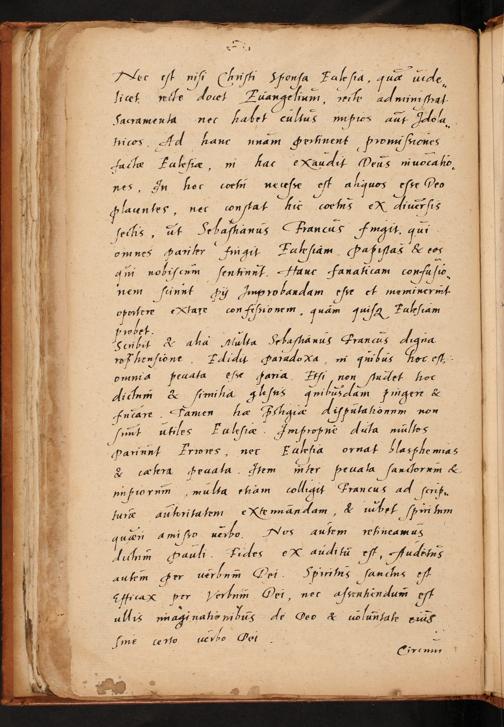 Nec est nisi Christi Sponsa Ecclesia, quae uide„
licet recte docet Euangelium, recte administrat
Sacramenta nec habet cultus impios aut Idola„
tricos. Ad hanc unam pertinent promissiones
factae Ecclesiae, in hac exaudit Deus inuocatio„
nes, In hoc coetu necesse est aliquos esse Deo
placentes, nec constat hic coetus ex diuersis
sectis, ut Sebastianus Francus fingit, qui
omnes pariter fingit Ecclesiam, papistas & eos
qui nobiscum sentiunt. Hanc fanaticam confusio„
nem sciunt pij Improbandam esse et meminerint
oportere extare confessionem, quam quisq Ecclesiam
probet.
Scribit & alia Multa Sebastianus Francus digna
reprehensione. Edidit paradoxa, in quibus hoc est:
omnia peccata esse paria. Etsi non studet hoc
dictum & similia glosis quibusdam pingere &
fucare. Tamen hae disputationum non
sunt utiles Ecclesiae. Improprie dicta multos
pariunt Errores, nec Ecclesia ornat blasphemias
& caetera peccata. Item inter peccata sanctorum &
impiorum, multa etiam colligit Francus ad scrip„
turae autoritatem extenuandam, & iubet spiritum
quaeri amisso uerbo. Nos autem retineamus
dictum pauli. Fides ex auditu est, Auditus
autem per uerbum Dei. Spiritus sanctus est
Efficax per Verbum Dei, nec assentiendum est
ullis imaginationibus de Deo & uoluntate eius
sine certo uerbo Dei.
Circum